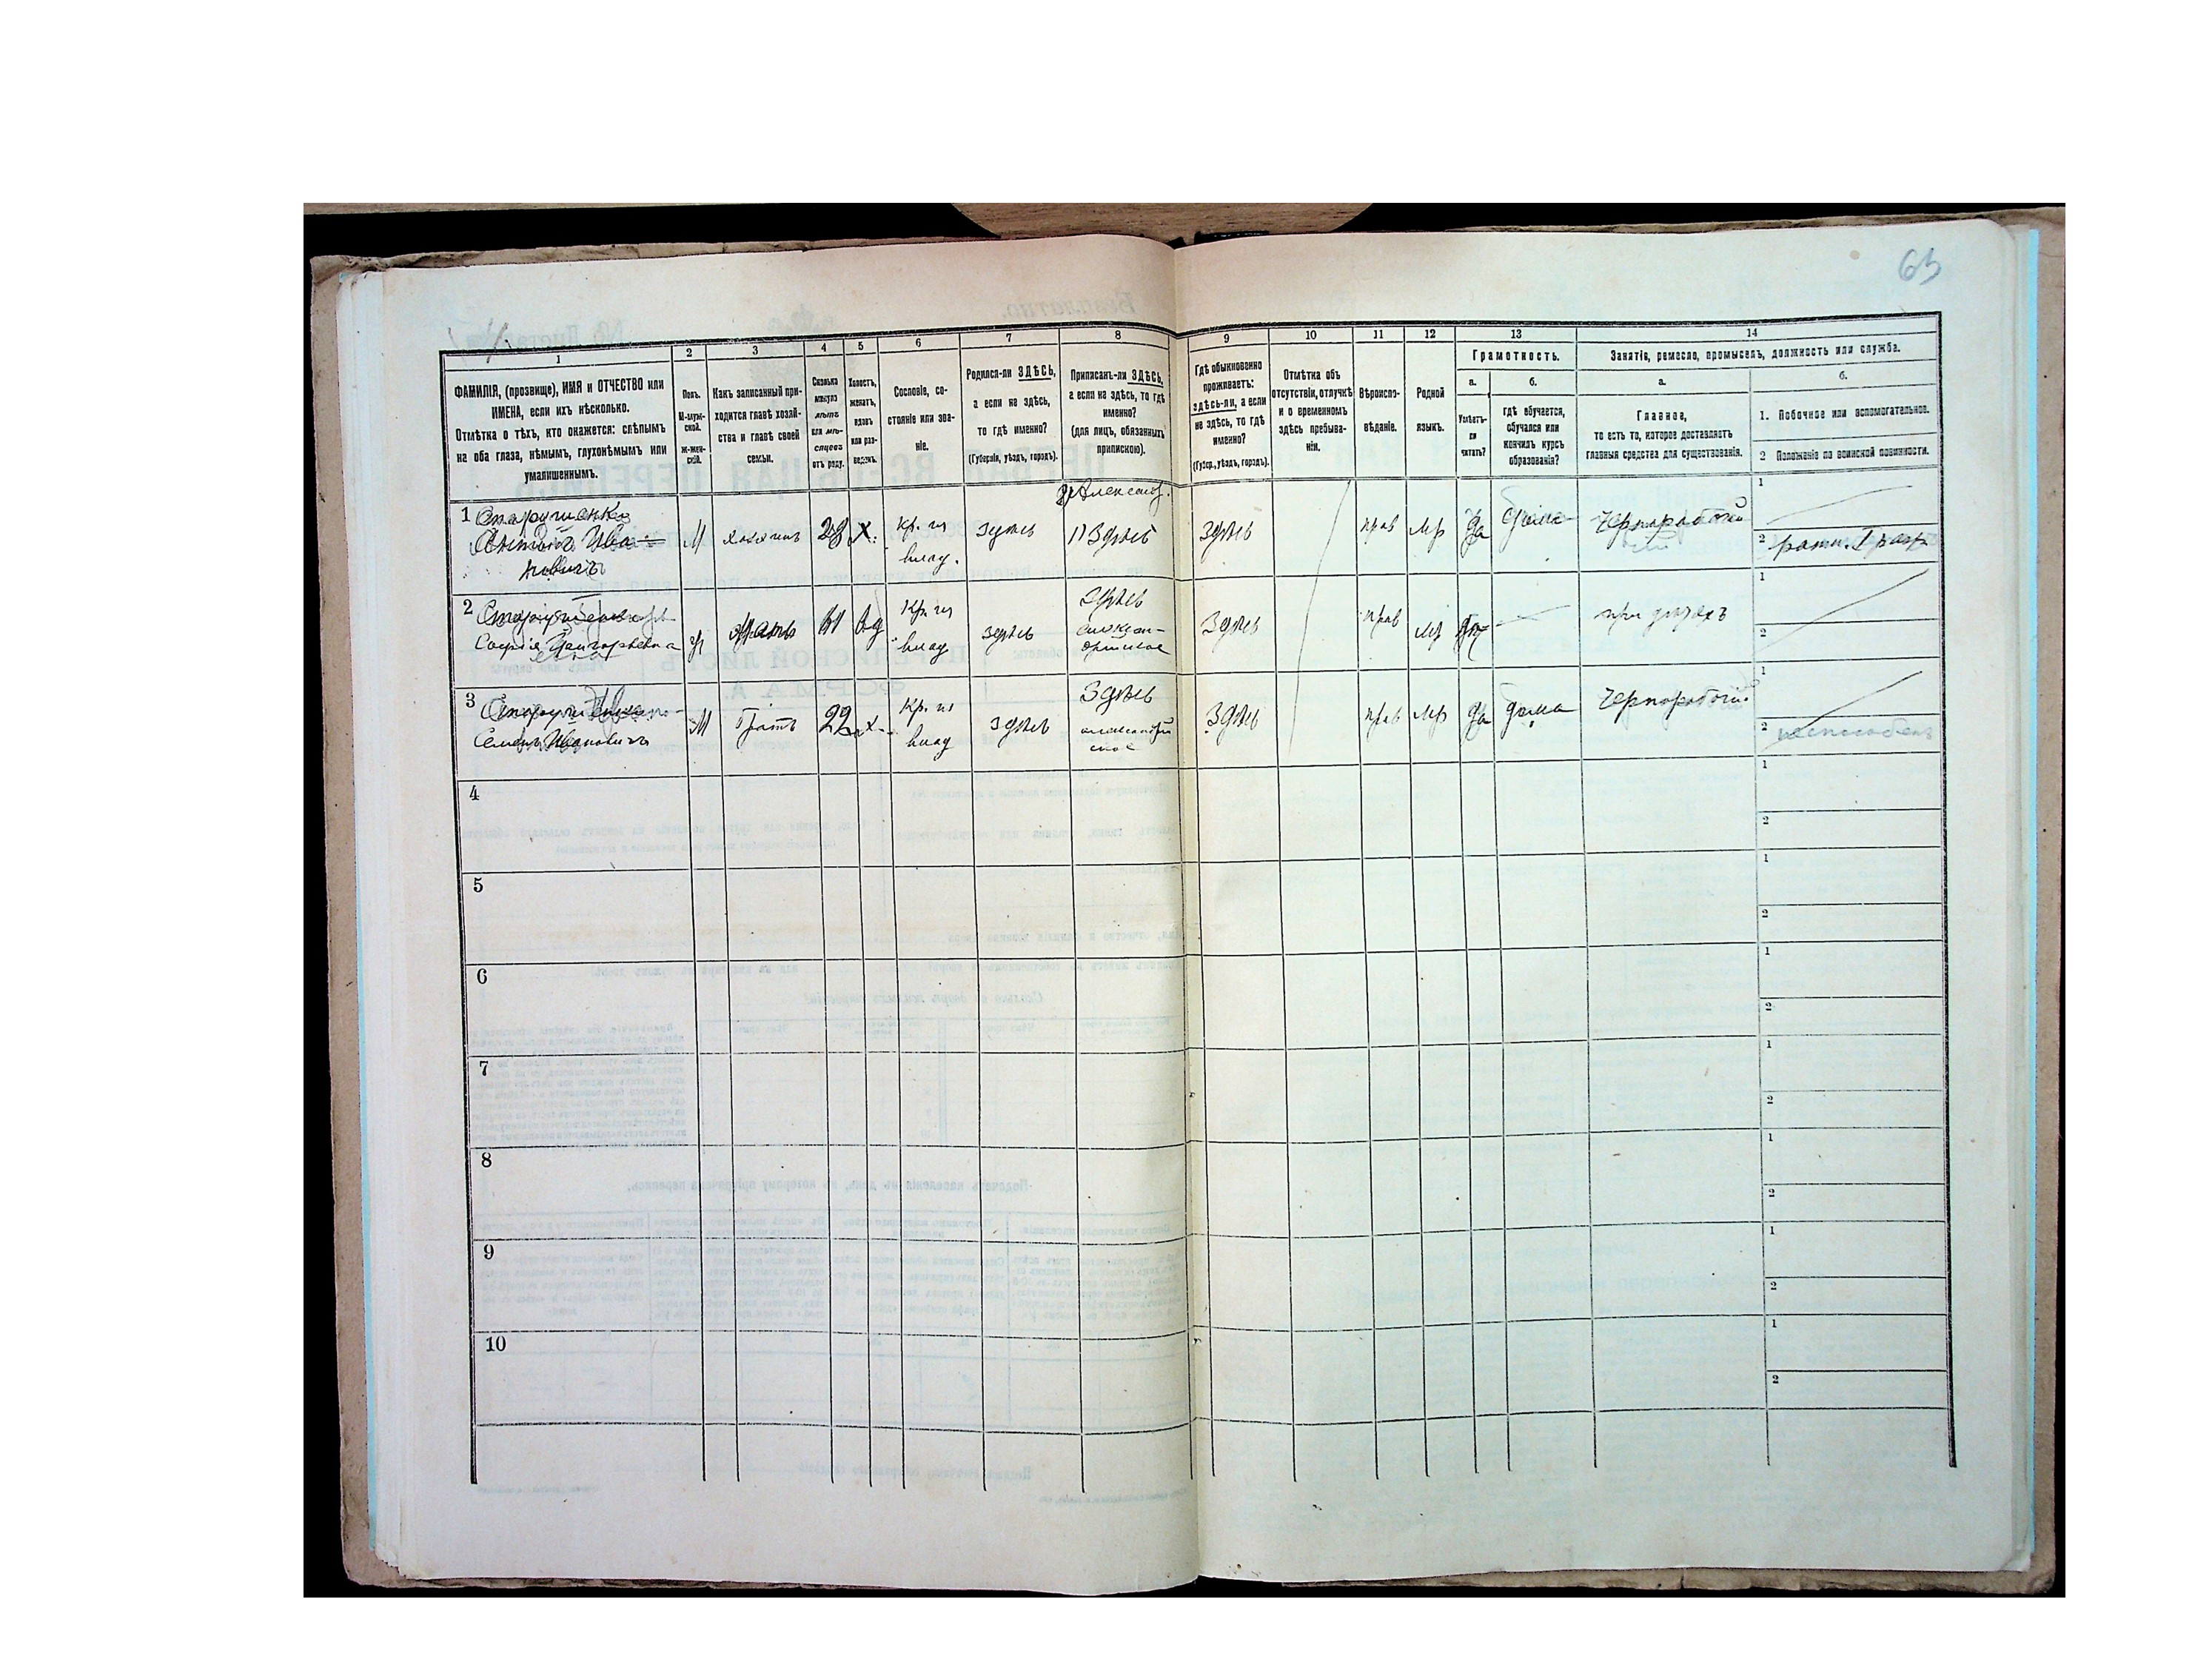 65
1
2
3
4
5
6
7
8
9
10
11
12
13
14
ФАМИЛІЯ, (прозвище), ИМЯ и ОТЧЕСТВО или
ИМЕНА, если ихъ нѣсколько.
Отмѣтка о тѣхъ, кто окажется: слѣпымъ
на оба глаза, нѣмымъ, глухонѣмымъ или
умалишеннымъ.
Полъ.
М-муж-
ской.
Ж-жен-
скій.
Какъ записанный при-
ходится главѣ хозяй-
ства и главѣ своей
семьи.
Сколько
минуло
лѣтъ
или мѣ-
сяцевъ
отъ роду.
Холостъ,
женатъ,
вдовъ
или раз-
веденъ.
Сословіе, со-
стояніе или зва-
ніе.
Родился-ли ЗДѢСЬ,
а если не здѣсь,
то гдѣ именно?
(Губернія, уѣздъ, городъ).
Приписанъ-ли ЗДѢСЬ,
а если не здѣсь, то гдѣ
именно?
(для лицъ, обязанныхъ
припискою).
Гдѣ обыкновенно
проживаетъ:
здѣсь-ли, а если
не здѣсь, то гдѣ
именно?
(Губер., уѣздъ, городъ).
Отмѣтка объ
отсутствіи, отлучкѣ
и о временномъ
здѣсь пребыва-
ніи.
Вѣроиспо-
вѣданіе.
Родной
языкъ.
Грамотность.
а.
Умѣетъ-
ли
читать?
б.
гдѣ обучается,
обучался или
кончилъ курсъ
образованія?
Занятіе, ремесло, промыселъ, должность или служба.
а.
Главное,
то есть то, которое доставляетъ
главныя средства для существованія.
б.
1. Побочное или вспомогательное.
2 Положеніе по воинской повинности.
1 Старушенко
Антонъ Ива-
новичъ
М
хозяинъ
28
х.
кр. из
влад.
здѣсь
Александ.
здѣсь
здѣсь
прав
мр
да
дома
чернорабочій
1
2 ратн. I разр
2
Софія Григорьевна
мать
61
вд
кр. из
влад
здѣсь
здѣсь
здѣсь
прав
мр
при дѣтяхъ
1
2
3
Семенъ Ивановичъ
М
братъ
22
х
кр. из
влад
здѣсь
здѣсь
здѣсь
прав
мр
да
дома
чернорабочій
1
2
4
1
2
5
1
2
6
1
2
7
1
2
8
1
2
9
1
2
10
1
2